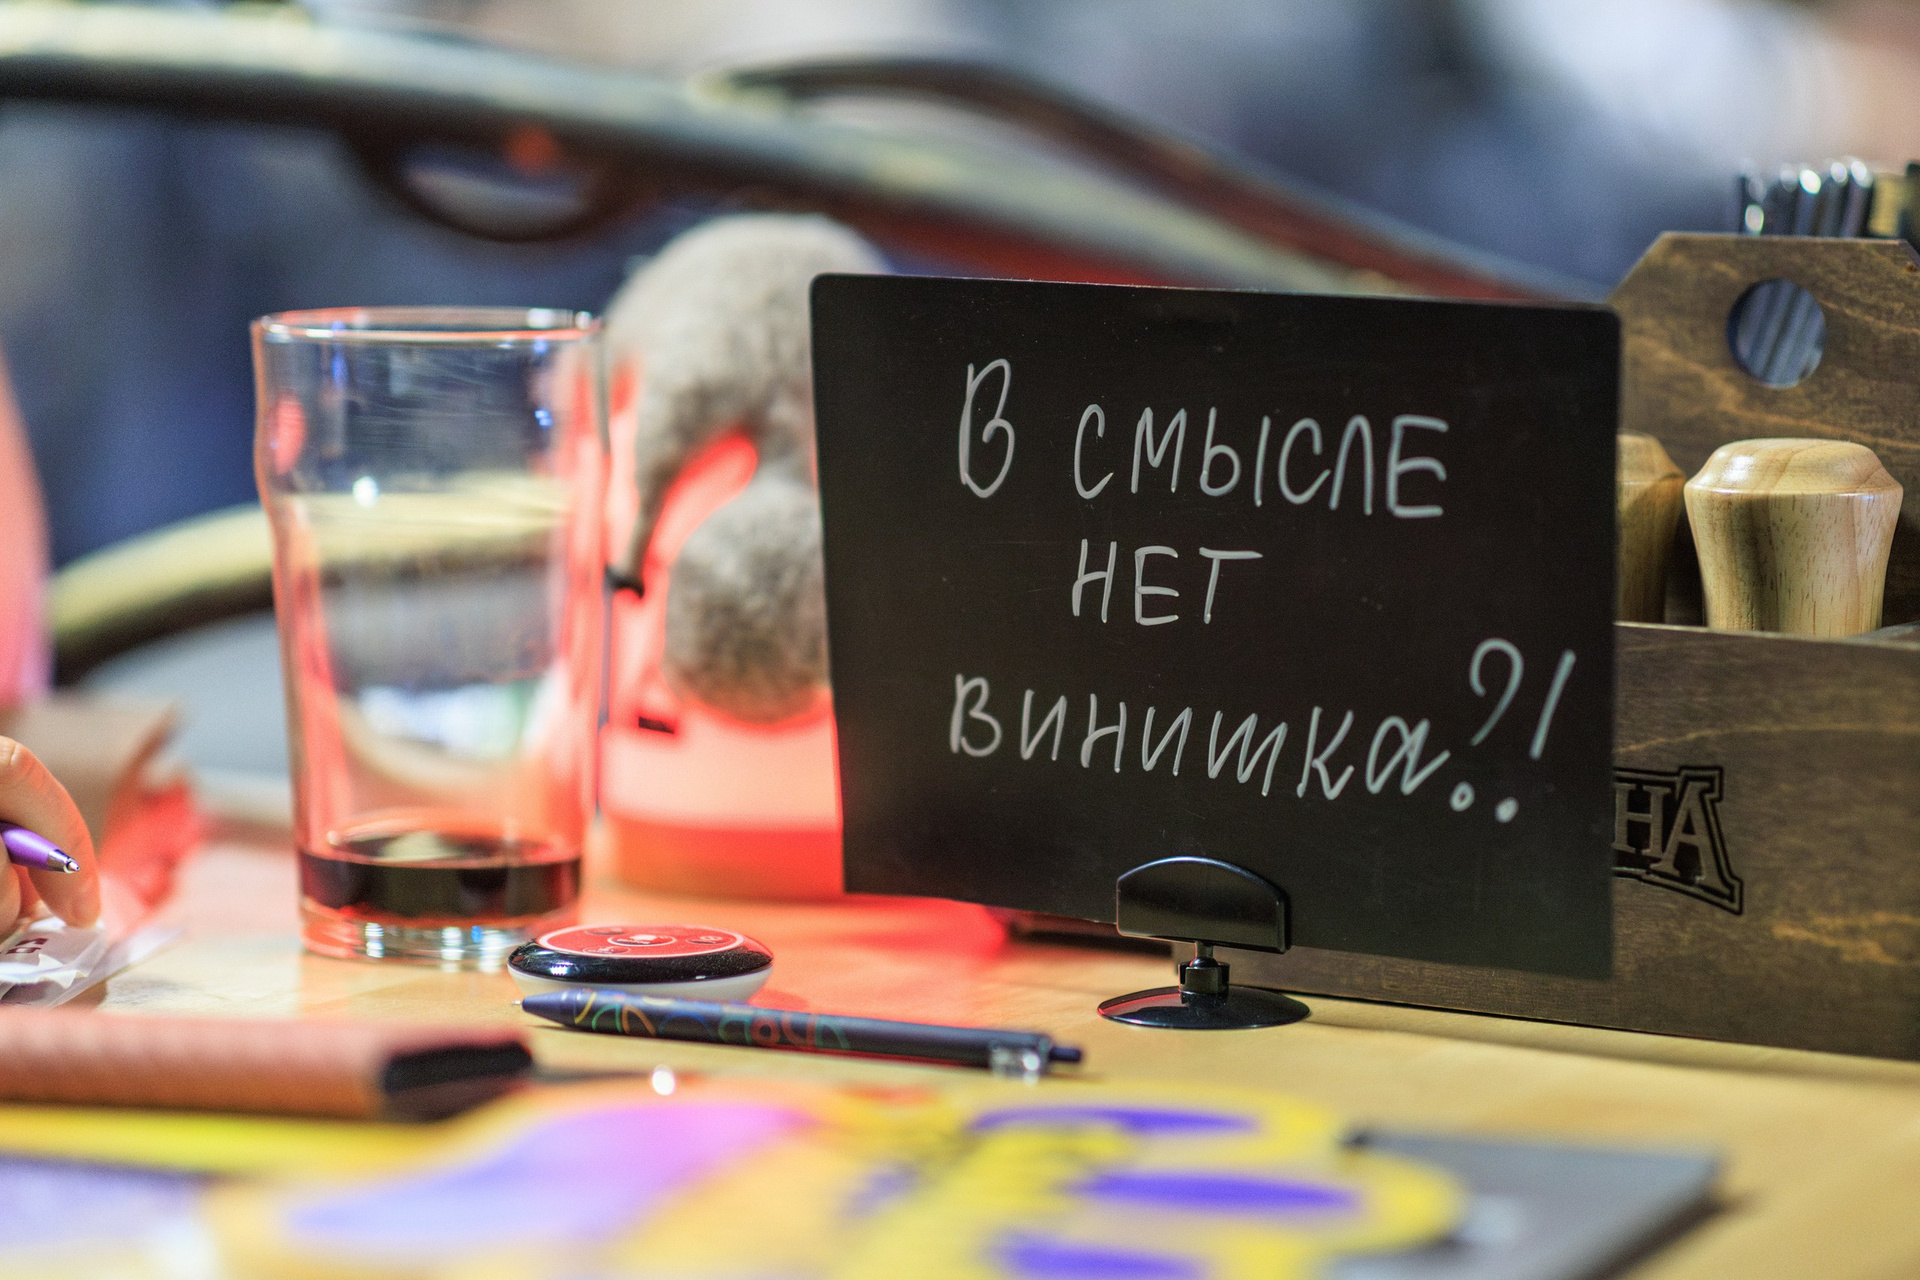 В СМЫСЛЕ
НЕТ
ВИНИШКА?!
НА